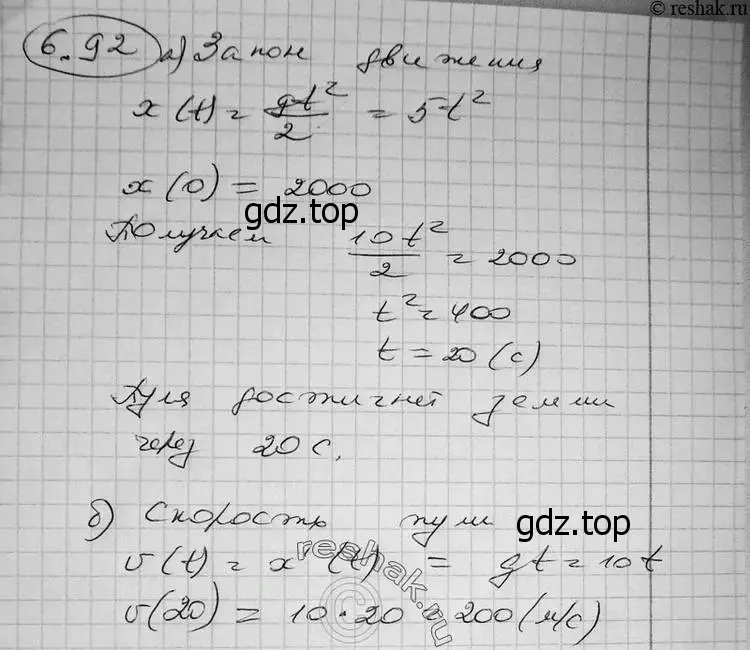 © reshak.ru
6.92 а) Закон движения
x(t) = gt²/2 = 5t²
x(0) = 2000
gdz.top
Получаем 10t²/2 = 2000
t² = 400
t = 20 (с)
Пуля достигнет земли
через 20 с.
б) Скорость пули gdz.top
v(t) = x'(t) = gt = 10t
reshak.ru
©
v(20) = 10·20 = 200 (м/с)